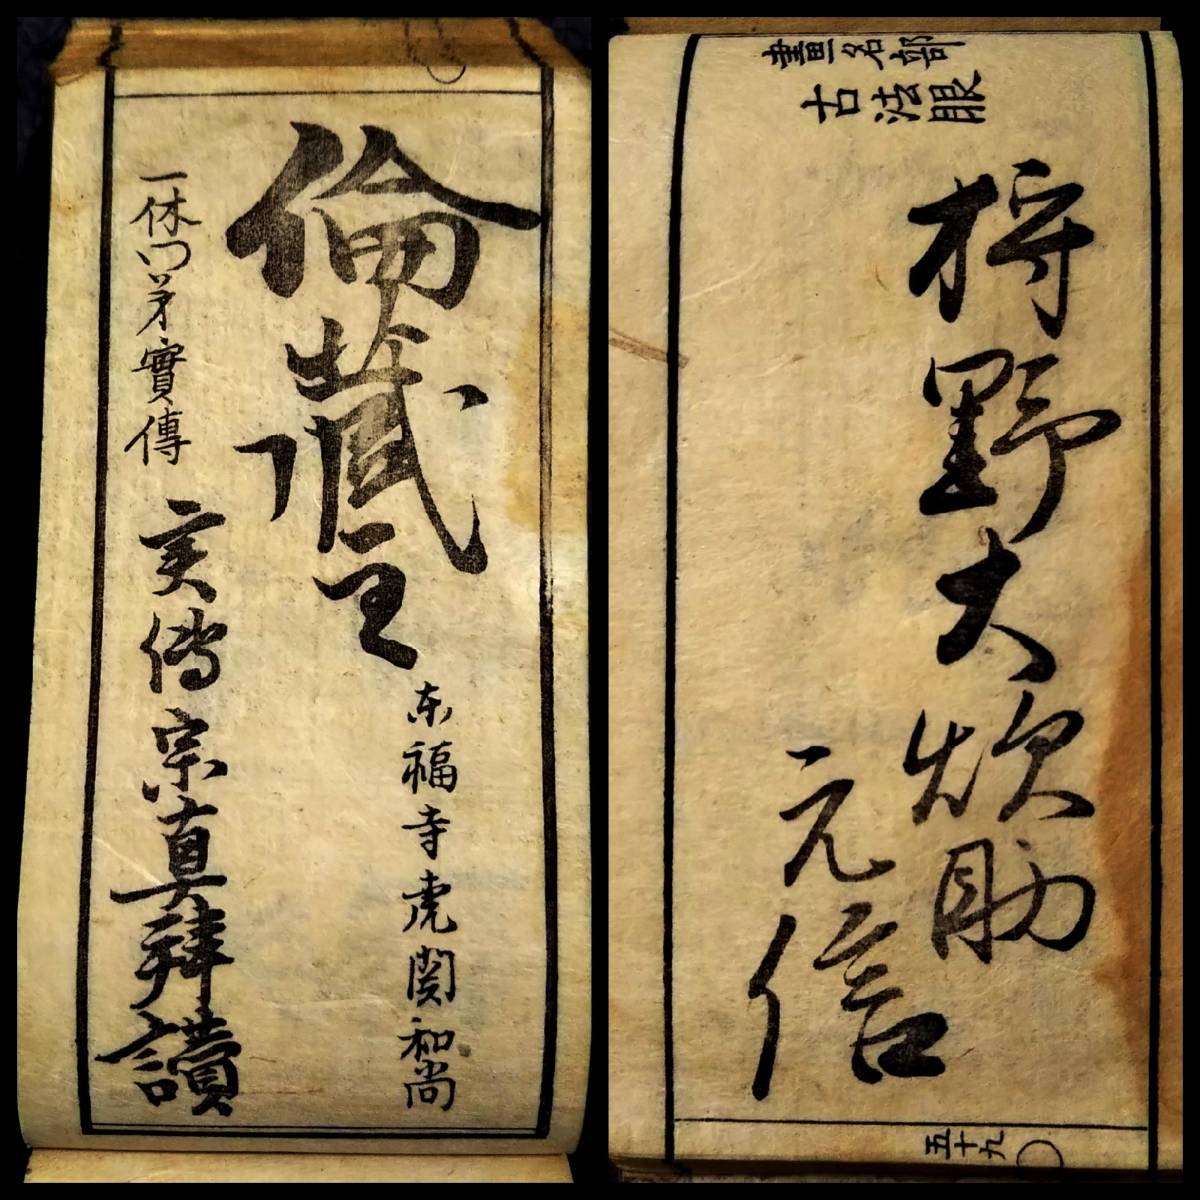 倫藏主
东福寺虎関和尚
一休门弟實傳
実傳宗真拜讃
畫名部
古法眼
狩野大炊助
元信
五十九